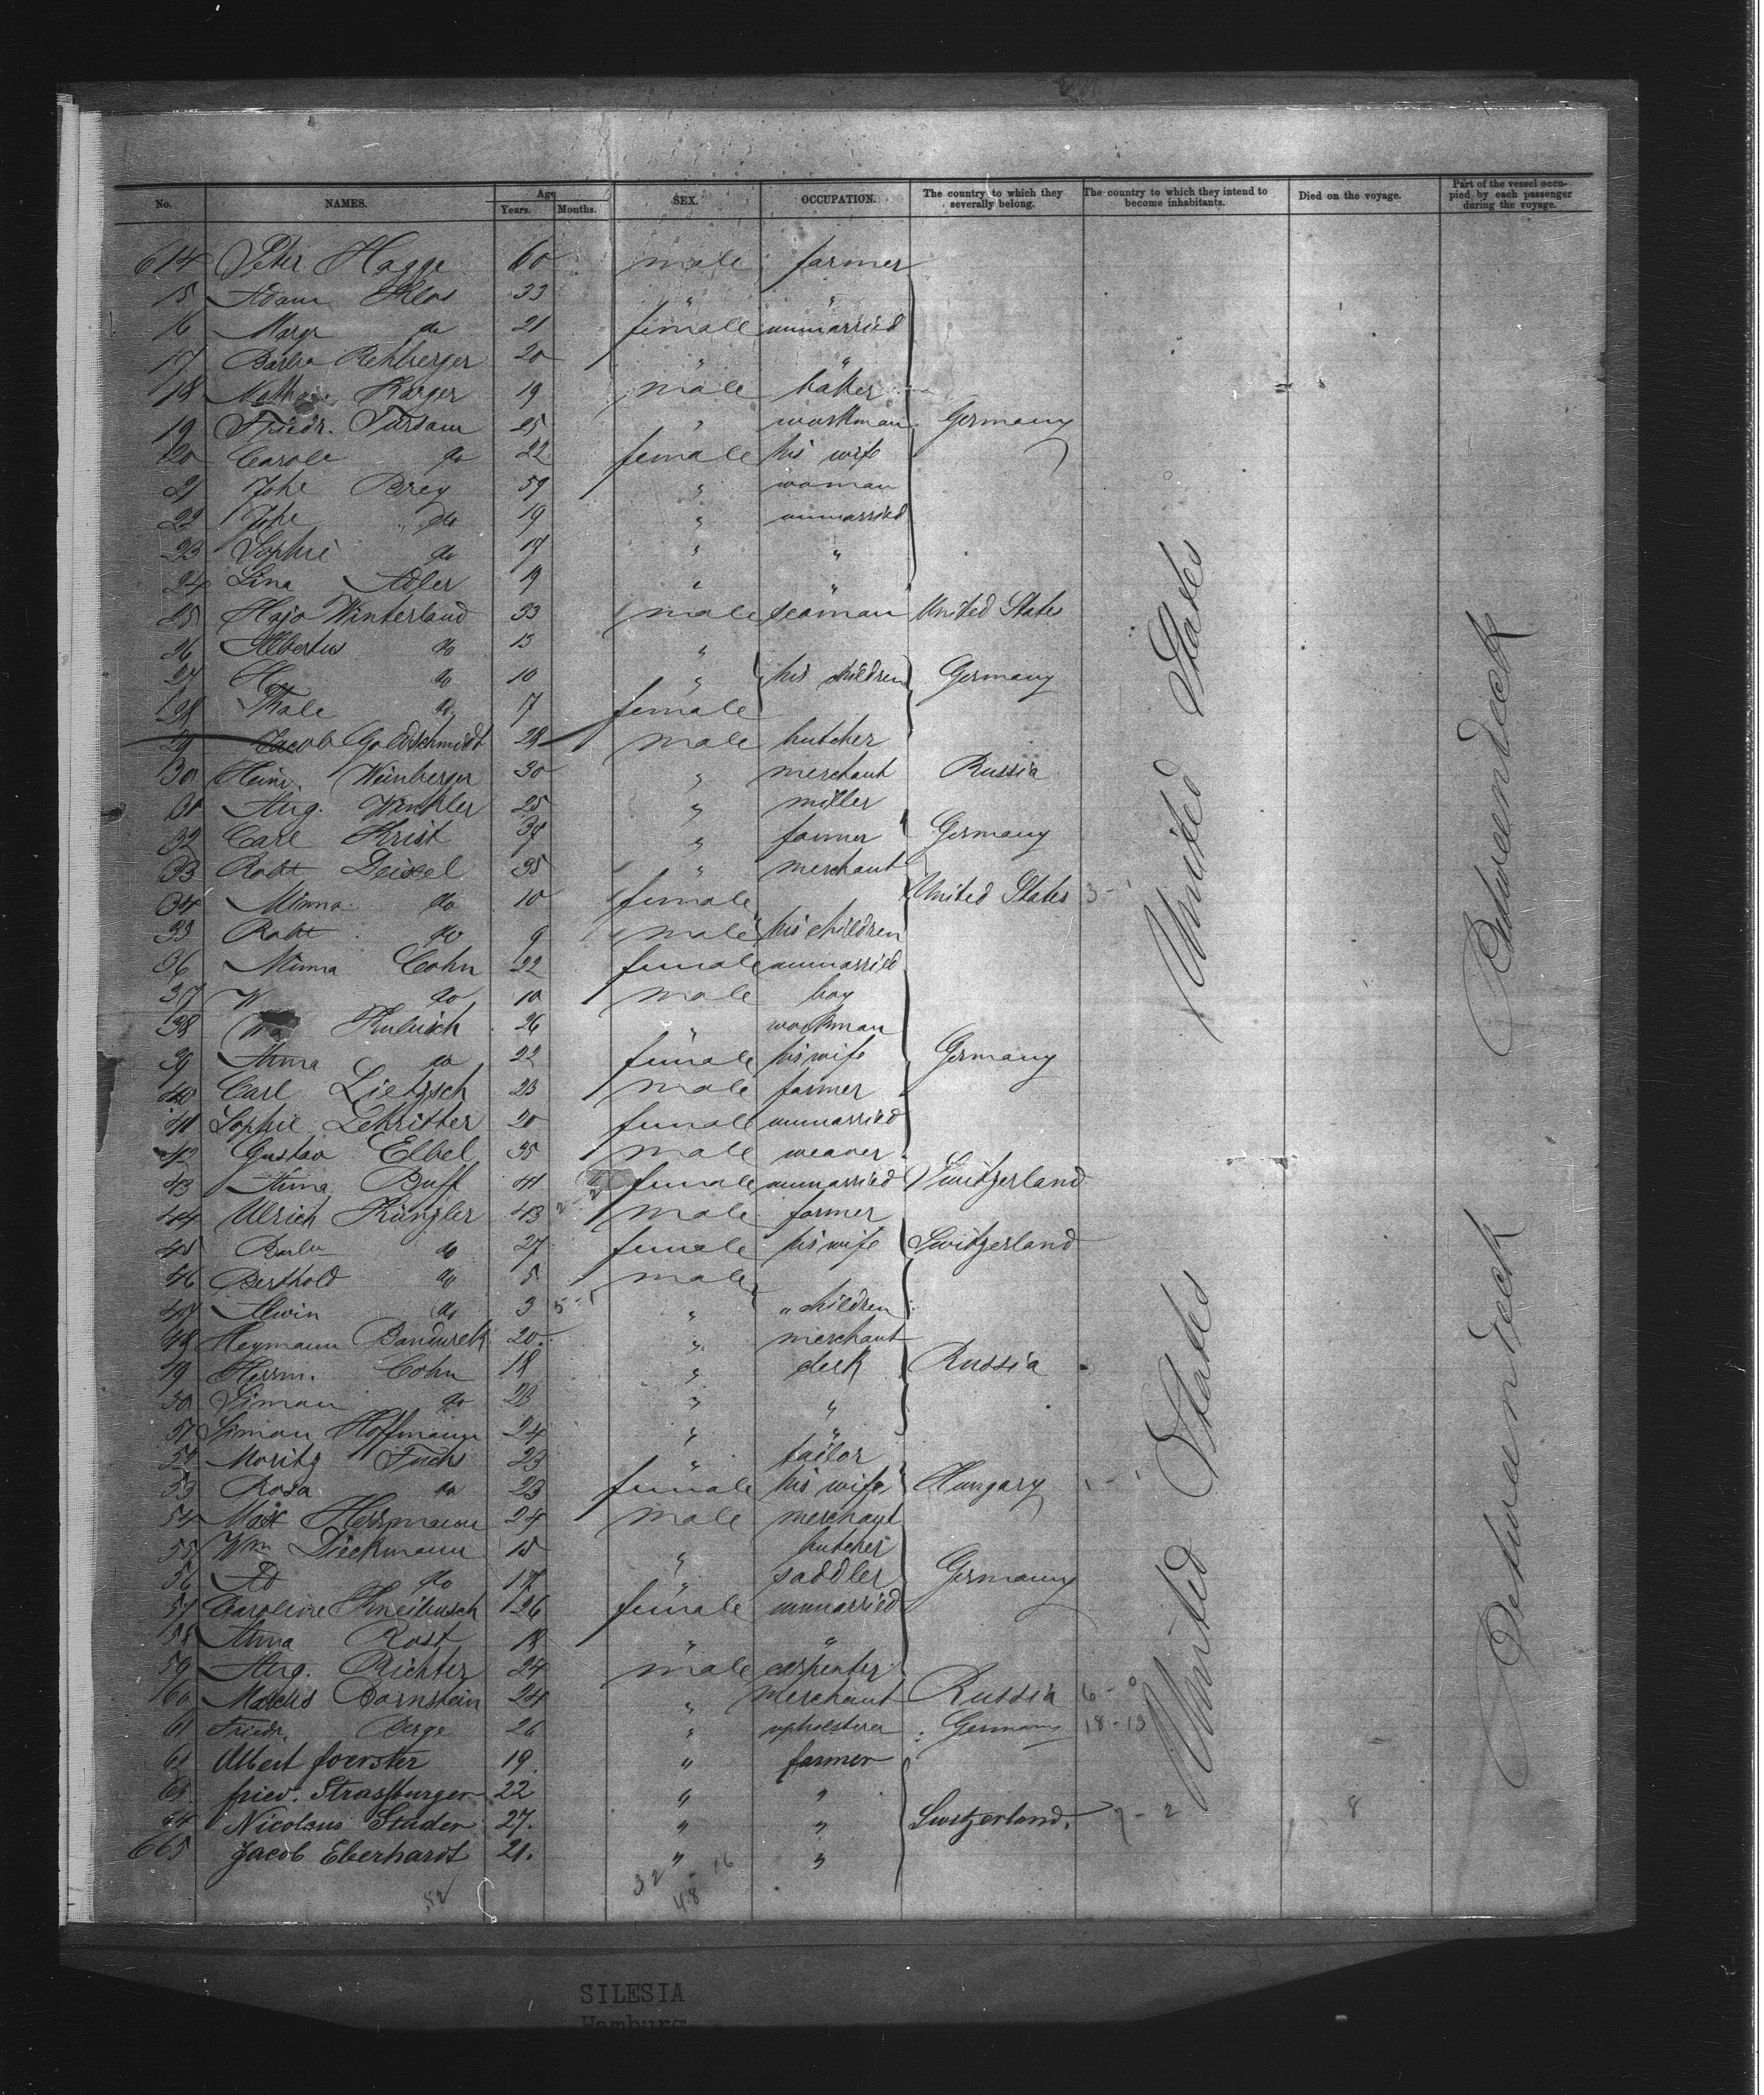 No. NAMES. Age Years. Months. SEX. OCCUPATION. The country to which they severally belong. The country to which they intend to become inhabitants. Died on the voyage. Part of the vessel occupied by each passenger during the voyage.
614 Peter Hagge 60 male farmer
15 Adam Klos 33 " "
16 Margr do 21 female unmarried
17 Barba Rehberger 20 " "
18 Karger 19 male baker
19 Friedr. Tursam 25 " workman Germany
20 Carole do 22 female his wife
21 Johe Brey 59 " woman
22 Johe do 19 " unmarried
23 Sophie do 17 " "
24 Lina Adler 19 " "
25 Hajo Winterland 33 male seaman United States
26 Albertus do 13 "
27 H do 10 " his children Germany
28 Thale do 17 female
29 Jacob Goldschmidt 28 male butcher
30 Heinr. Weinberger 30 " merchant Russia
31 Aug. Winkler 25 " miller
32 Carl Krist 39 " farmer Germany
33 Robt Deissel 35 " merchant
34 Minna do 10 female United States 3-1
35 Robt do 9 male his children
36 Minna Cohn 22 female unmarried
37 W do 10 male boy
38 Kubisch 26 " workman
39 Anna do 22 female his wife Germany
40 Carl Lietzsch 23 male farmer
41 Sophie Lehritter 20 female unmarried
42 Gustav Elbel 35 male weaver
43 Anna Buff 41 female unmarried Switzerland
44 Ulrich Küngler 43 male farmer
45 Barba do 27 female his wife Switzerland
46 Berthold do 5 male
47 Alwin do 3 " " children
48 Heymann Bandurek 20 " merchant
49 Herrm. Cohn 18 " clerk Russia
50 Simon do 23 " "
51 Simon Hoffmann 24 " "
52 Moritz Fuchs 23 " tailor
53 Rosa do 23 female his wife Hungary 1-1
54 Max Herrmann 24 male merchant
55 Wm Dieckmann 15 " butcher
56 Ad do 17 " saddler Germany
57 Caroline Kneibusch 26 female unmarried
58 Anna Rost 18 " "
59 Aug. Richter 24 male carpenter
60 Marcus Bornstein 24 " merchant Russia 6-0
61 Friedr. Berge 26 " upholsterer Germany 18-13
62 Albert foerster 19. " farmer
63 fried. Strassburger 22 " "
64 Nicolaus Studer 27. " " Switzerland. 7-2 8
665 Jacob Eberhardt 21. " "
52 32-16
48
United States
United States
Betweendeck
Betweendeck
SILESIA
Hamburg